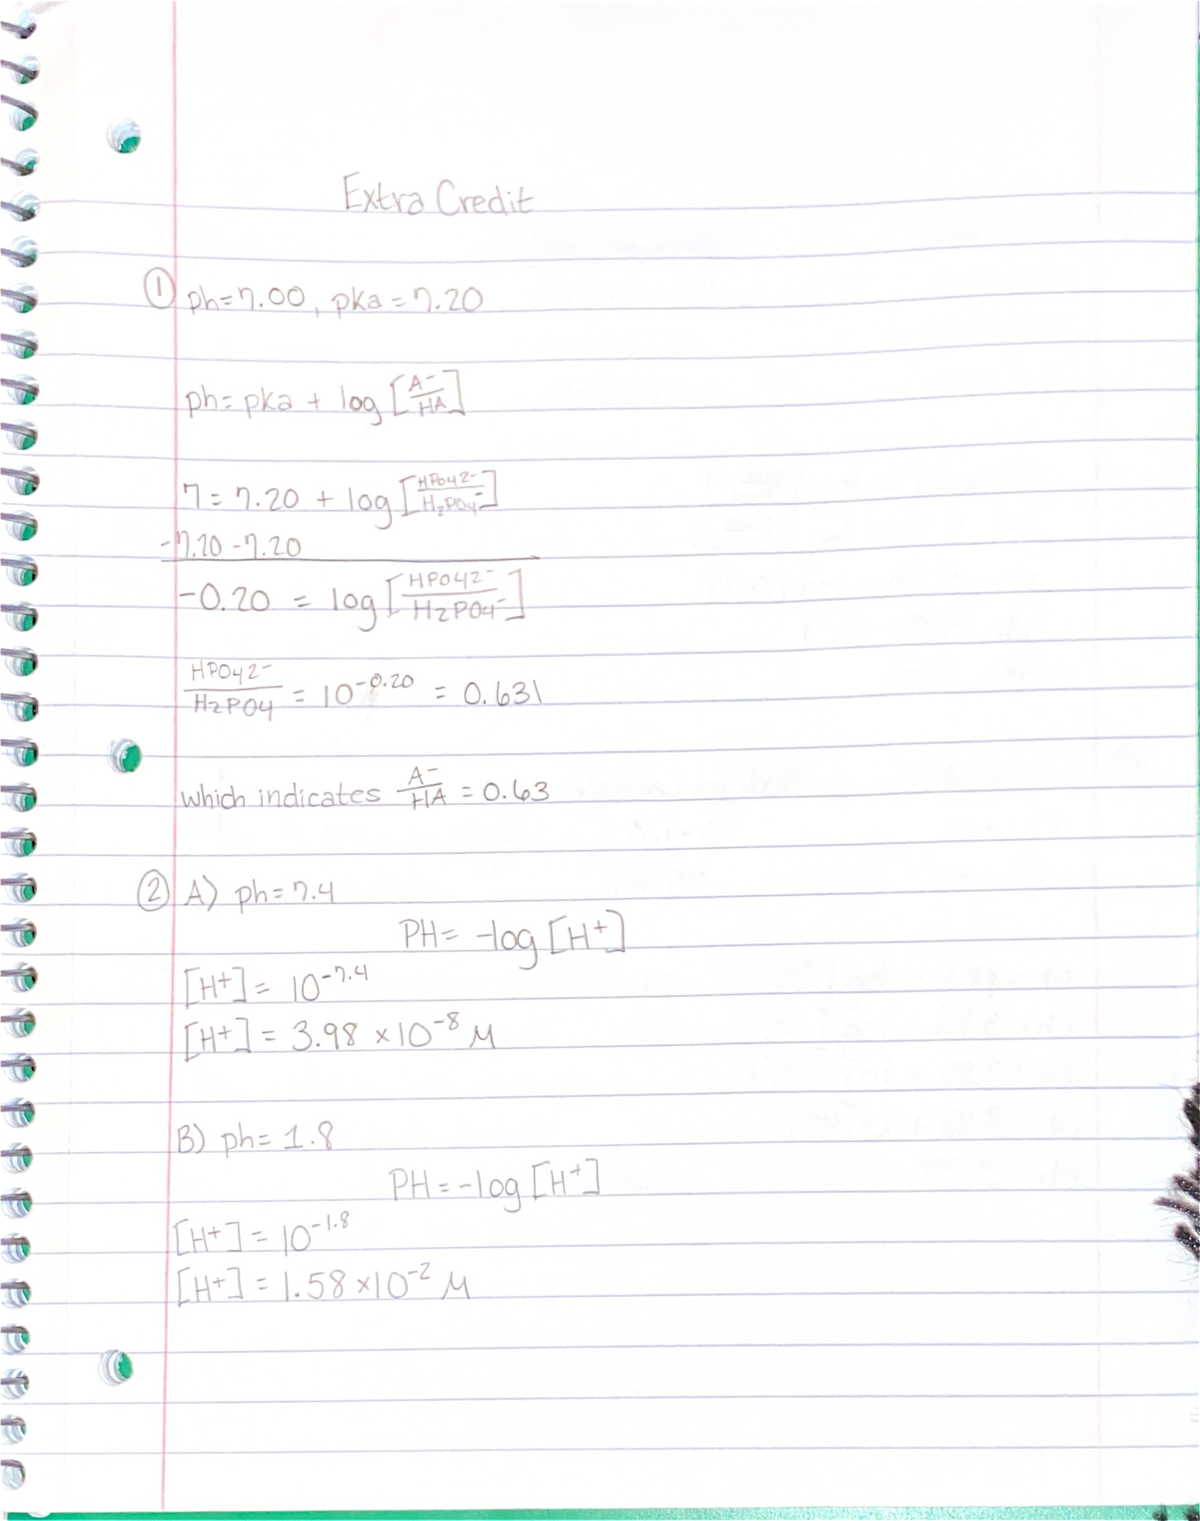 Extra Credit
① ph=7.00, pka = 7.20
ph= pka + log [A-/HA]
7 = 7.20 + log [HPO42-/H2PO4-]
-7.20 -7.20
-0.20 = log [HPO42-/H2PO4-]
HPO42-/H2PO4 = 10^-0.20 = 0.631
which indicates A-/HA = 0.63
② A) ph=7.4
PH= -log [H+]
[H+] = 10^-7.4
[H+] = 3.98 x10^-8 M
B) ph= 1.8
PH=-log [H+]
[H+] = 10^-1.8
[H+] = 1.58 x10^-2 M